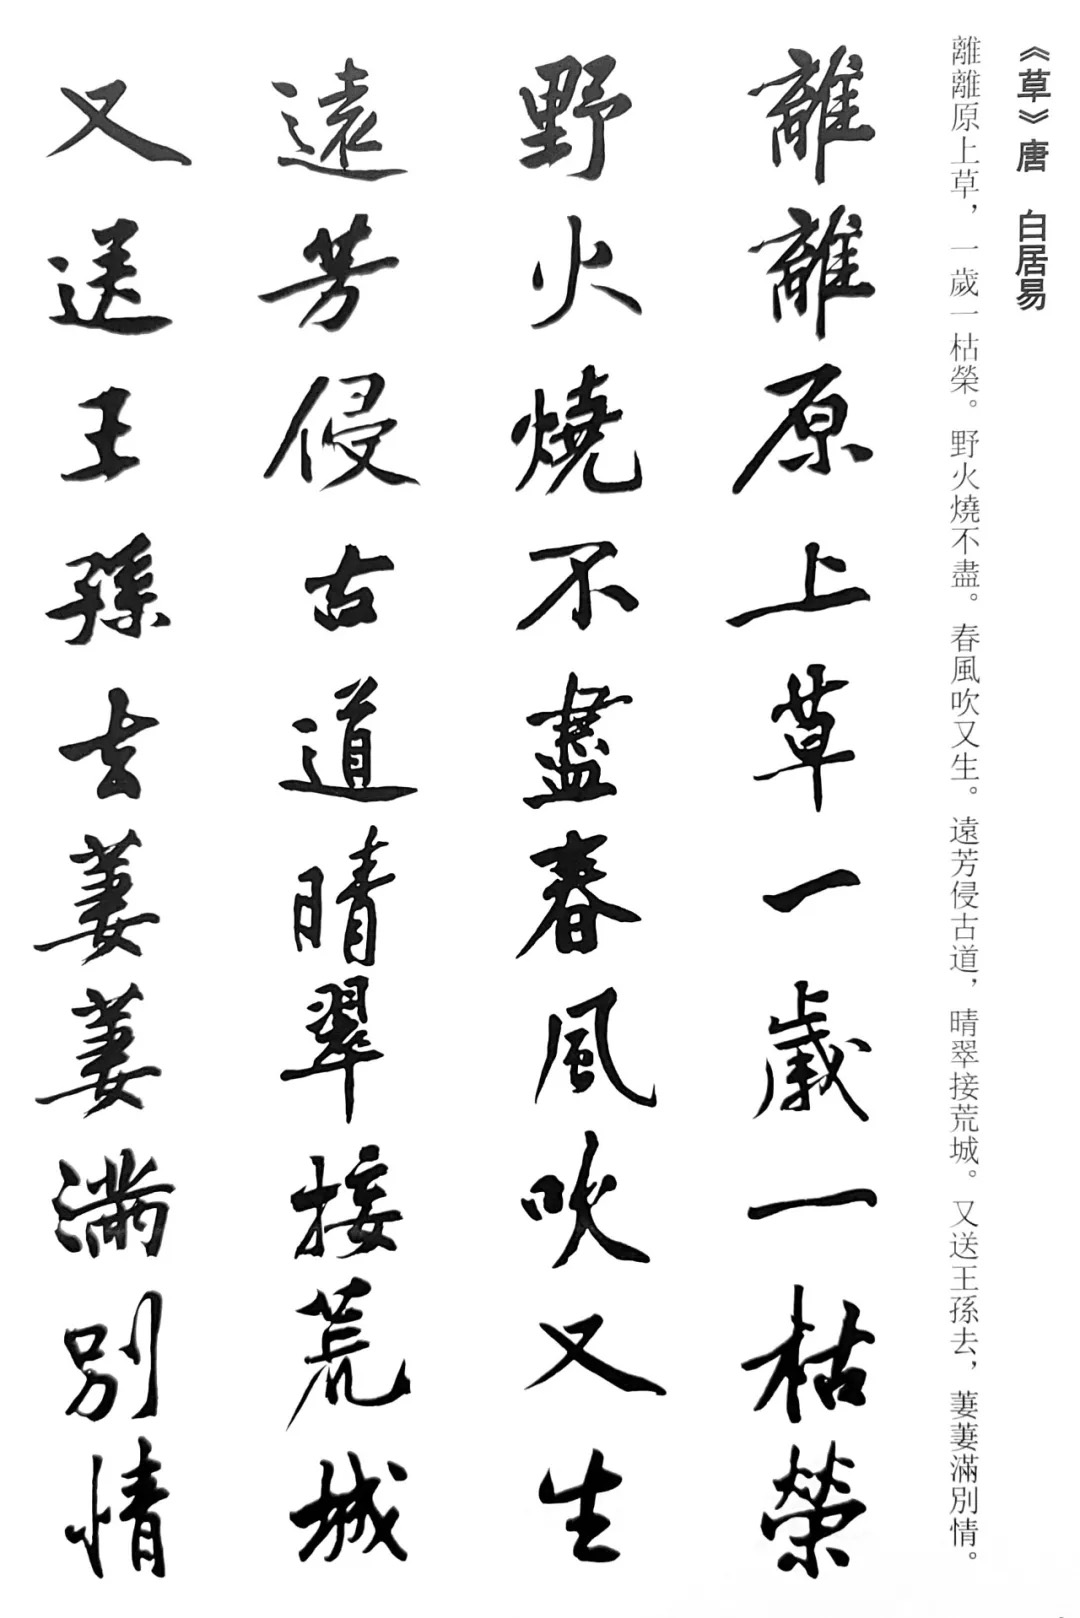 《草》唐　白居易
離離原上草，一歲一枯榮。野火燒不盡。春風吹又生。遠芳侵古道，晴翠接荒城。又送王孫去，萋萋滿別情。
離離原上草一歲一枯榮
野火燒不盡春風吹又生
遠芳侵古道晴翠接荒城
又送王孫去萋萋滿別情